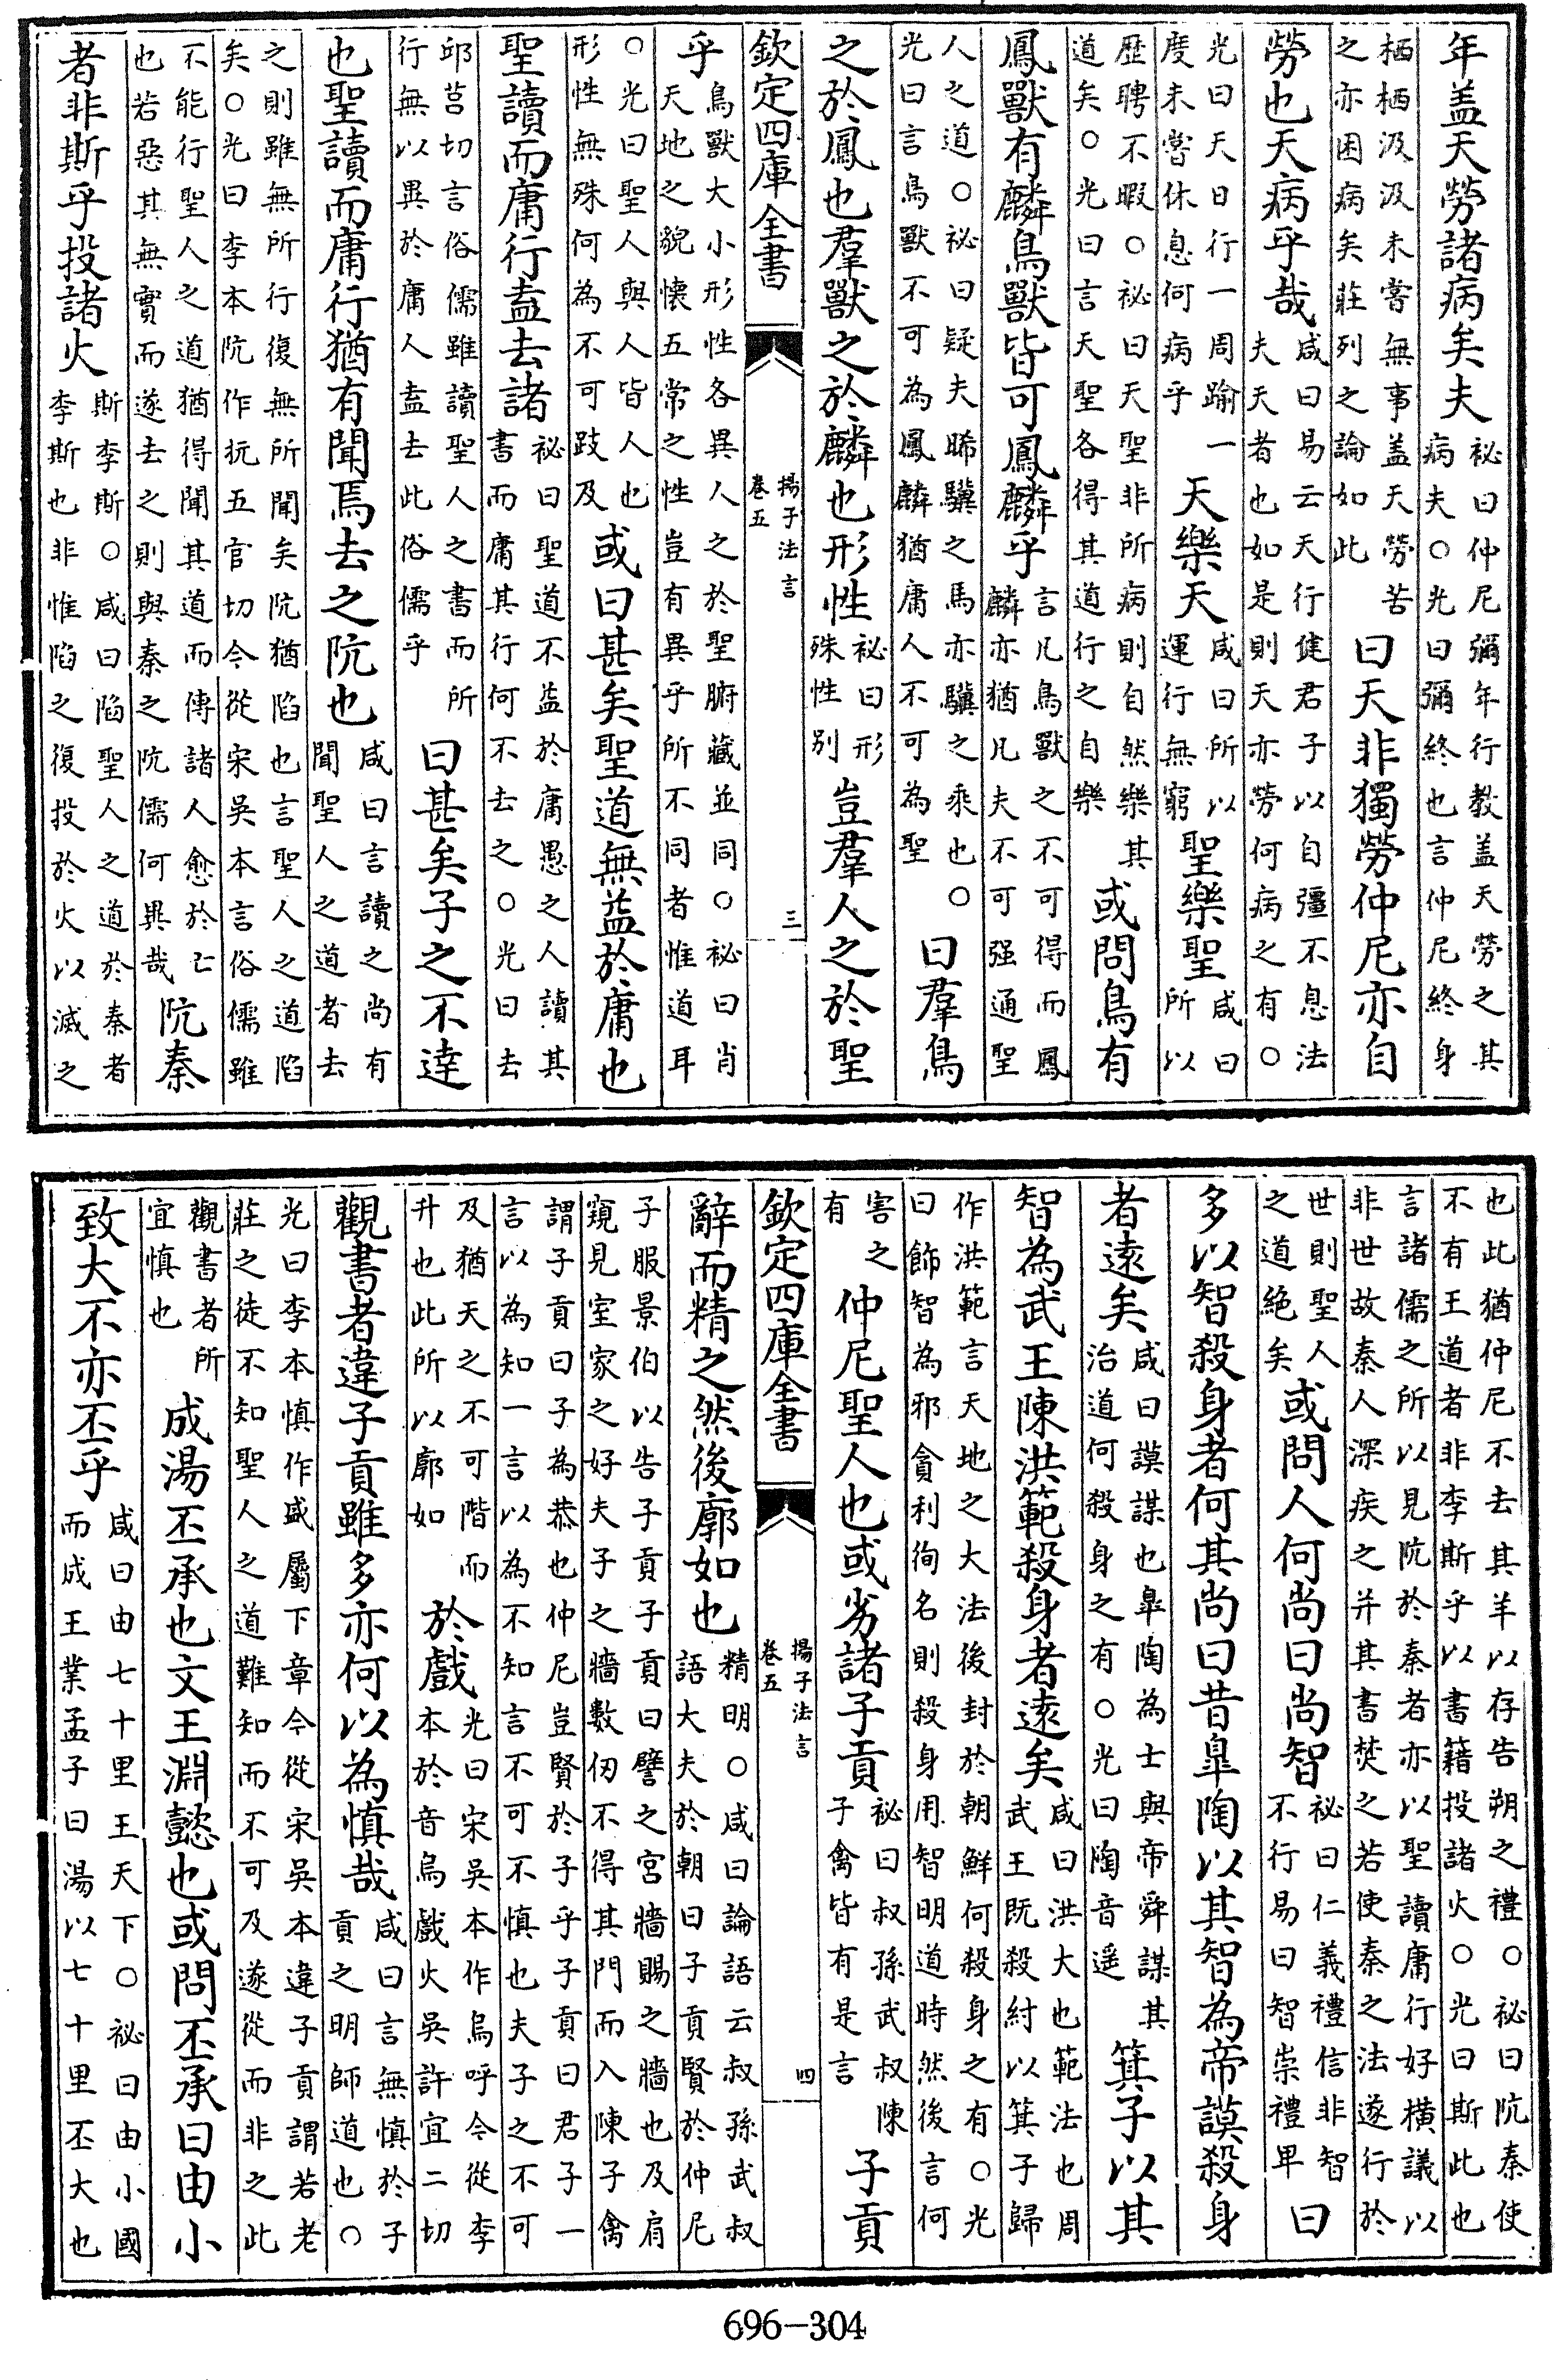 年盖天勞諸病矣夫祕曰仲尼彌年行教盖天勞之其病夫○光曰彌終也言仲尼終身
栖栖汲汲未嘗無事盖天勞苦之亦困病矣莊列之論如此曰天非獨勞仲尼亦自
勞也天病乎哉咸曰易云天行健君子以自彊不息法夫天者也如是則天亦勞何病之有○
光曰天日行一周踰一度未嘗休息何病乎天樂天咸曰所以運行無窮聖樂聖咸曰所以
歷聘不暇○祕曰天聖非所病則自然樂其道矣○光曰言天聖各得其道行之自樂或問鳥有
鳳獸有麟鳥獸皆可鳳麟乎言凡鳥獸之不可得而鳳麟亦猶凡夫不可强通聖
人之道○祕曰疑夫睎驥之馬亦驥之乘也○光曰言鳥獸不可為鳳麟猶庸人不可為聖曰羣鳥
之於鳳也羣獸之於麟也形性祕曰形殊性别豈羣人之於聖
欽定四庫全書 揚子法言卷五 三
乎鳥獸大小形性各異人之於聖腑藏並同○祕曰肖天地之貌懷五常之性豈有異乎所不同者惟道耳
○光曰聖人與人皆人也形性無殊何為不可跂及或曰甚矣聖道無益於庸也
聖讀而庸行盍去諸祕曰聖道不益於庸愚之人讀其書而庸其行何不去之○光曰去
邱莒切言俗儒雖讀聖人之書而所行無以異於庸人盍去此俗儒乎曰甚矣子之不達
也聖讀而庸行猶有聞焉去之阬也咸曰言讀之尚有聞聖人之道者去
之則雖無所行復無所聞矣阬猶陷也言聖人之道陷矣○光曰李本阬作抏五官切今從宋吳本言俗儒雖
不能行聖人之道猶得聞其道而傳諸人愈於亡也若惡其無實而遂去之則與秦之阬儒何異哉阬秦
者非斯乎投諸火斯李斯○咸曰陷聖人之道於秦者李斯也非惟陷之復投於火以滅之
也此猶仲尼不去其羊以存告朔之禮○祕曰阬秦使不有王道者非李斯乎以書籍投諸火○光曰斯此也
言諸儒之所以見阬於秦者亦以聖讀庸行好橫議以非世故秦人深疾之并其書焚之若使秦之法遂行於
世則聖人之道絶矣或問人何尚曰尚智祕曰仁義禮信非智不行易曰智崇禮卑曰
多以智殺身者何其尚曰昔臯陶以其智為帝謨殺身
者遠矣咸曰謨謀也臯陶為士與帝舜謀其治道何殺身之有○光曰陶音遥箕子以其
智為武王陳洪範殺身者遠矣咸曰洪大也範法也周武王既殺紂以箕子歸
作洪範言天地之大法後封於朝鮮何殺身之有○光曰飾智為邪貪利徇名則殺身用智明道時然後言何
害之有仲尼聖人也或劣諸子貢祕曰叔孫武叔陳子禽皆有是言子貢
欽定四庫全書 揚子法言卷五 四
辭而精之然後廓如也精明○咸曰論語云叔孫武叔語大夫於朝曰子貢賢於仲尼
子服景伯以告子貢子貢曰譬之宮牆賜之牆也及肩窺見室家之好夫子之牆數仞不得其門而入陳子禽
謂子貢曰子為恭也仲尼豈賢於子乎子貢曰君子一言以為知一言以為不知言不可不慎也夫子之不可
及猶天之不可階而升也此所以廓如於戲光曰宋吳本作烏呼今從李本於音烏戲火吳許宜二切
觀書者違子貢雖多亦何以為慎哉咸曰言無慎於子貢之明師道也○
光曰李本慎作盛屬下章今從宋吳本違子貢謂若老莊之徒不知聖人之道難知而不可及遂從而非之此
觀書者所宜慎也成湯丕承也文王淵懿也或問丕承曰由小
致大不亦丕乎咸曰由七十里王天下○祕曰由小國而成王業孟子曰湯以七十里丕大也
696-304